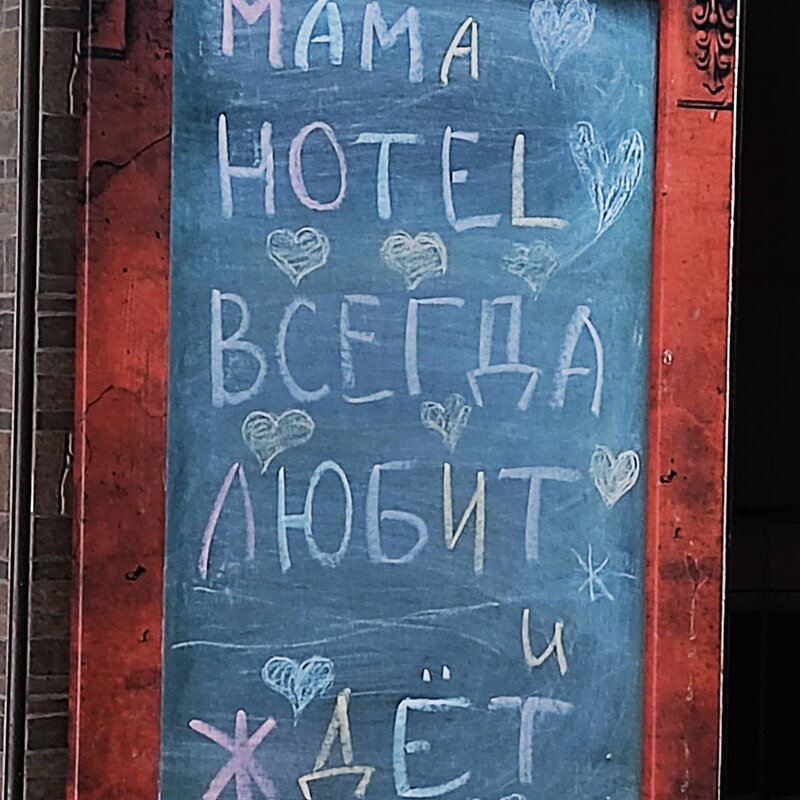 МАМА
HOTEL
ВСЕГДА
ЛЮБИТ
и
ЖДЁТ